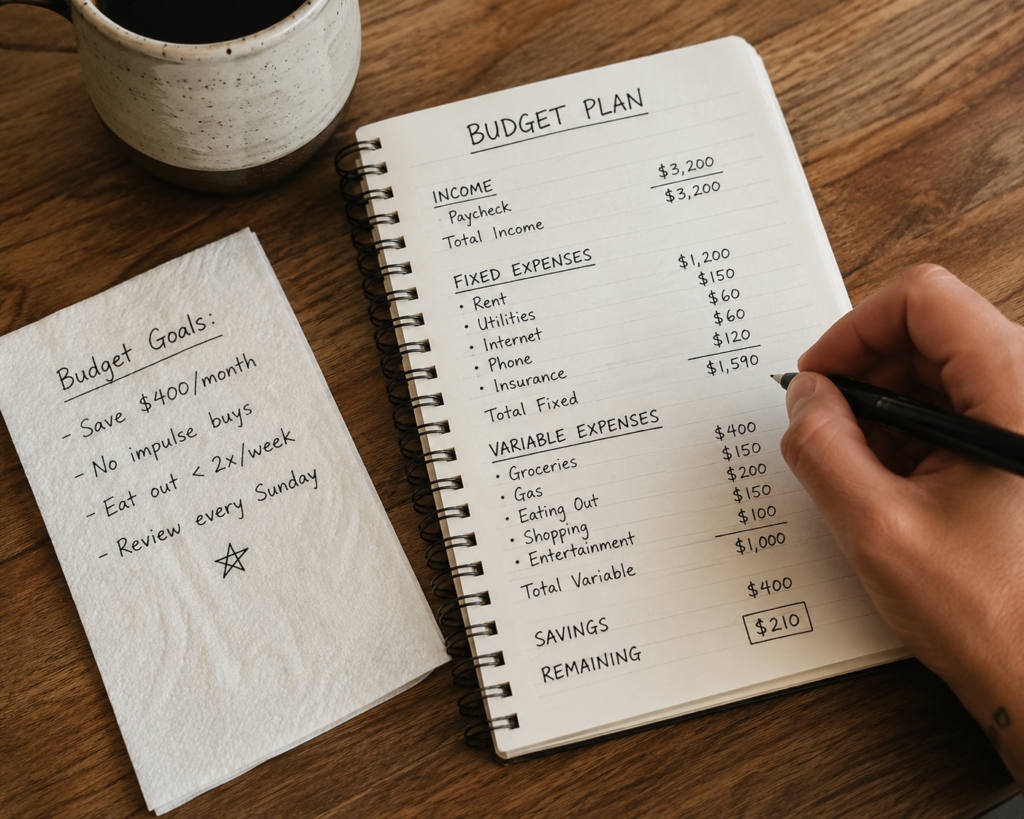 Budget Goals:
- Save $400/month
- No impulse buys
- Eat out < 2x/week
- Review every Sunday
BUDGET PLAN
INCOME
Paycheck $3,200
Total Income $3,200
FIXED EXPENSES
• Rent $1,200
• Utilities $150
• Internet $60
• Phone $60
• Insurance $120
Total Fixed $1,590
VARIABLE EXPENSES
• Groceries $400
• Gas $150
• Eating Out $200
• Shopping $150
• Entertainment $100
Total Variable $1,000
SAVINGS $400
REMAINING $210